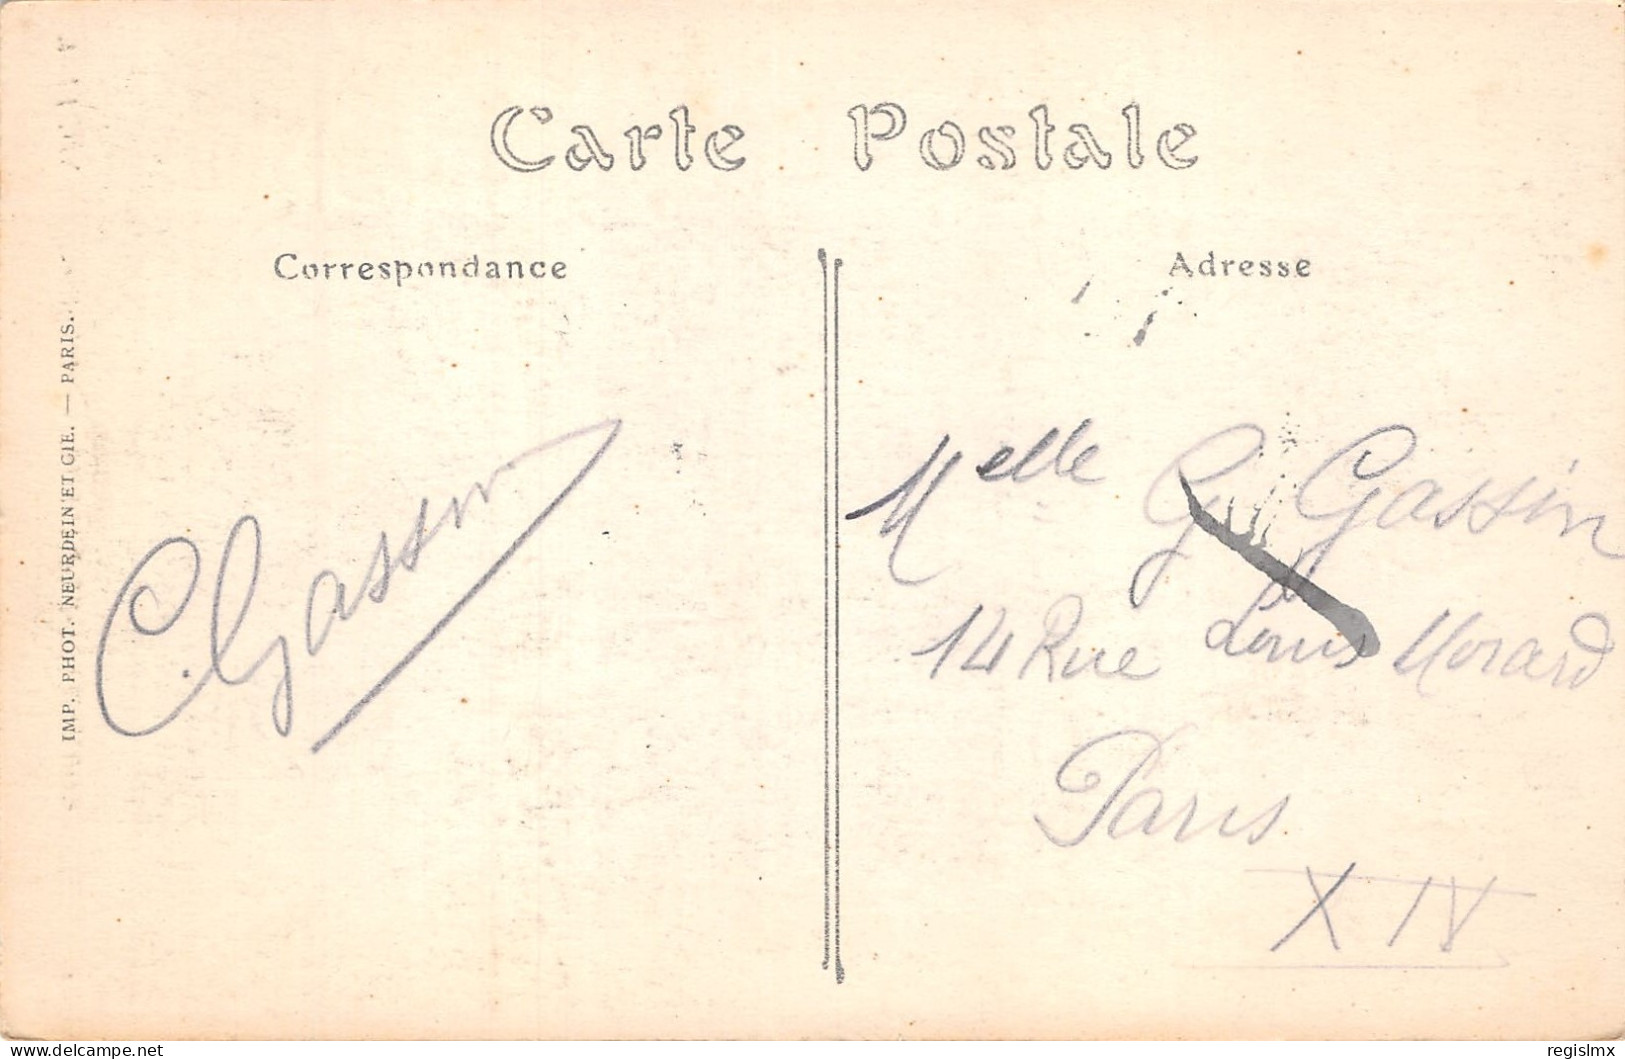 Carte Postale
Correspondance
Adresse
IMP. PHOT. NEURDEIN ET CIE. — PARIS.
C. Gassin
Melle G. Gassin
14 Rue Louis Morard
Paris
XIV
www.delcampe.net
regislmx